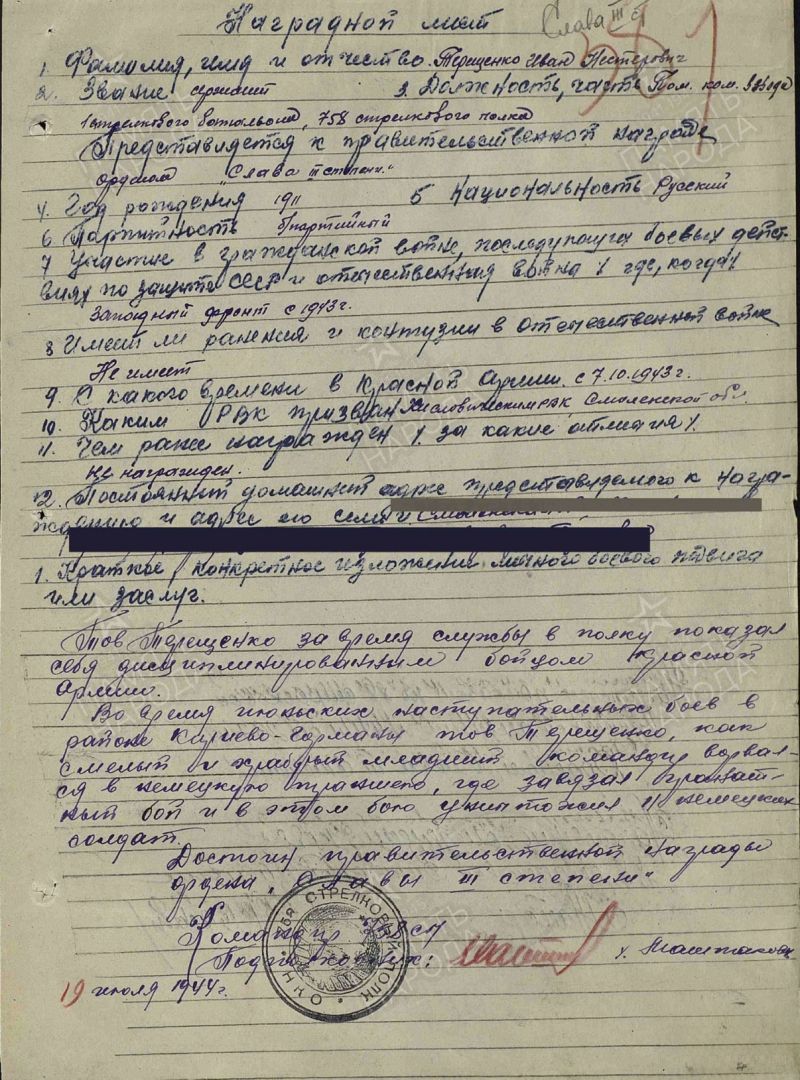 Наградной лист
Слава III ст
1. Фамилия, имя и отчество Терещенко Иван Нестерович
2. Звание сержант 3. Должность, часть Пом. ком. взвода
1 стрелкового батальона, 758 стрелкового полка
Представляется к правительственной награде
орденом "Слава III степени."
4. Год рождения 1911 5 Национальность Русский
6 Партийность б/партийный
7 Участие в гражданской войне, последующих боевых дейст-
виях по защите СССР и отечественная война (где, когда)
Западный фронт с 1943г.
8 Имеет ли ранения и контузии в отечественной войне
Не имеет
9. С какого времени в Красной Армии. с 7.10.1943г.
10. Каким РВК призван Хиславичским РВК Смоленской обл.
11. Чем ранее награжден (за какие отличия).
Не награжден.
12. Постоянный домашний адрес представляемого к награ-
ждению и адрес его семьи
1. Краткое, конкретное изложение личного боевого подвига
или заслуг.
Тов Терещенко за время службы в полку показал
себя дисциплинированным бойцом Красной
Армии.
Во время июньских наступательных боев в
районе тов Терещенко, как
смелый и храбрый младший командир ворвал-
ся в немецкую траншею, где завязал гранат-
ный бой и в этом бою уничтожил 11 немецких
солдат.
Достоин правительственной награды
ордена "Славы III степени"
Командир 758 СП
Подполковник:
19 июля 1944г.
758 СТРЕЛКОВЫЙ ПОЛК